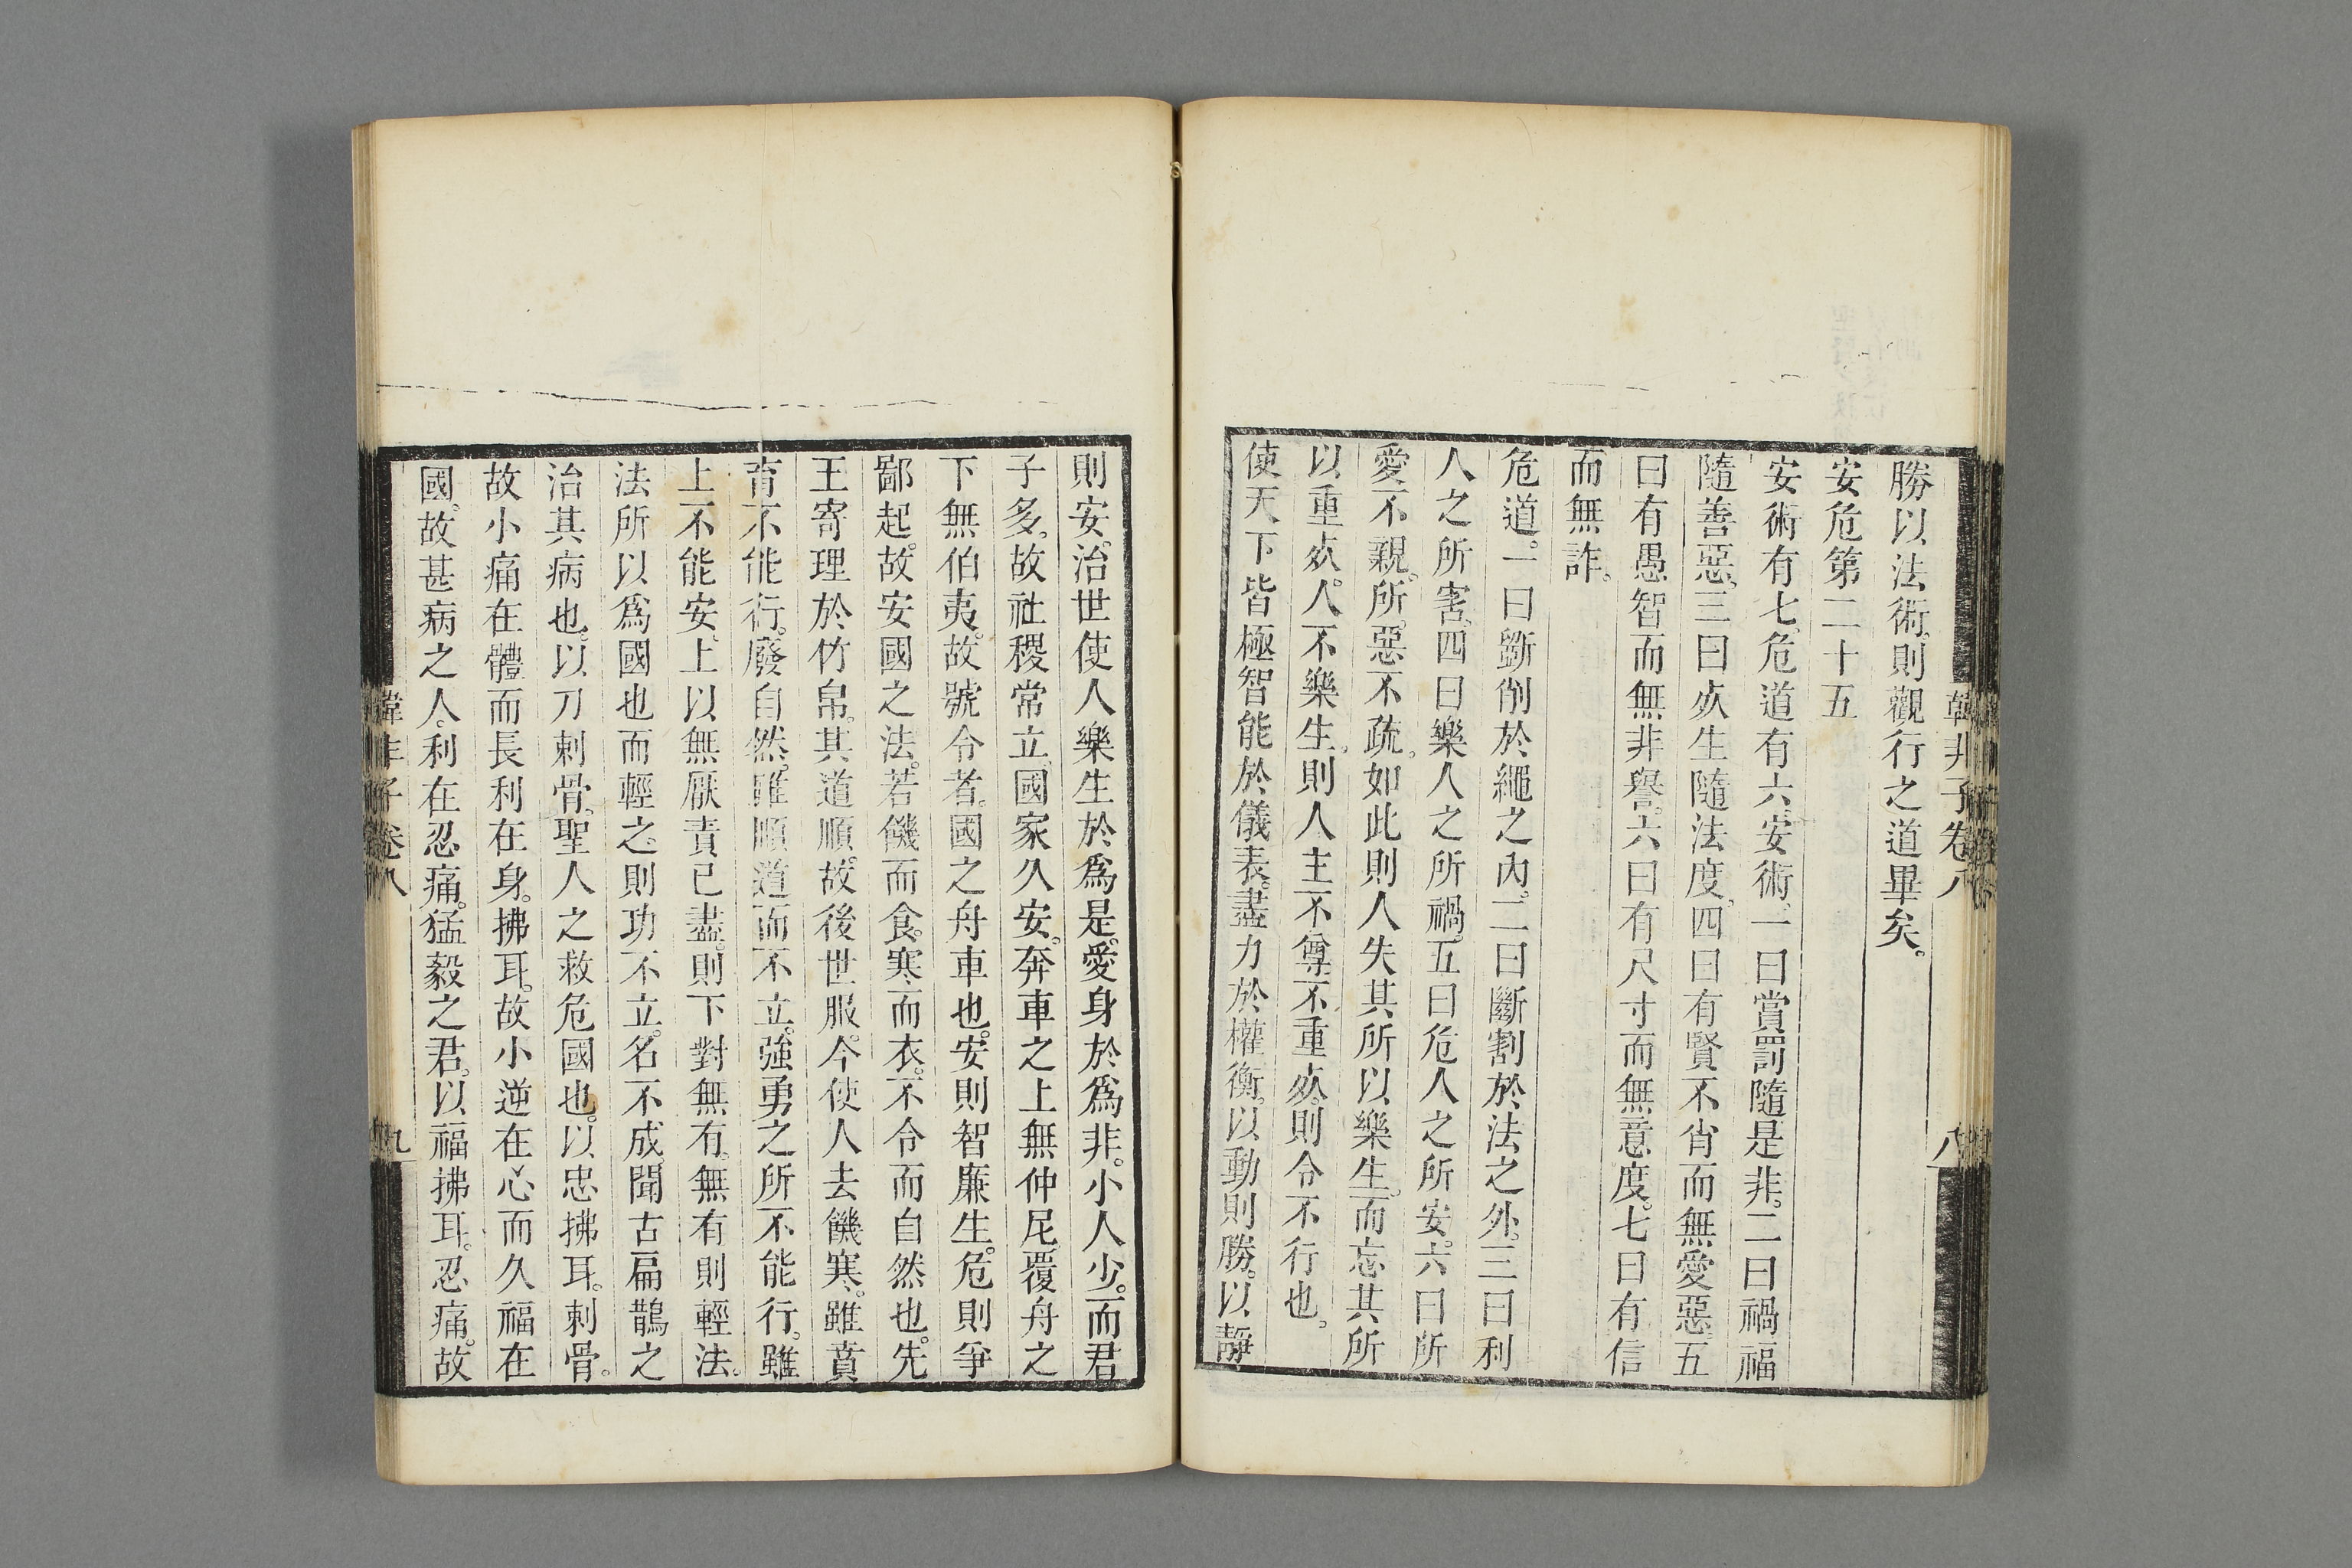 韓非子卷八
八
勝以法術。則觀行之道畢矣。
安危第二十五
安術有七。危道有六。安術。一曰賞罰隨是非。二曰禍福
隨善惡。三曰㱙生隨法度。四曰有賢不肖而無愛惡。五
曰有愚智而無非譽。六曰有尺寸而無意度。七曰有信
而無詐。
危道。一曰斲削於繩之內。二曰斷割於法之外。三曰利
人之所害。四曰樂人之所禍。五曰危人之所安。六曰所
愛不親。所惡不疏。如此則人失其所以樂生。而忘其所
以重㱙。人不樂生。則人主不尊。不重㱙。則令不行也。
使天下皆極智能於儀表。盡力於權衡。以動則勝。以靜
則安。治世使人樂生於爲是。愛身於爲非。小人少。而君
子多。故社稷常立。國家久安。奔車之上無仲尼。覆舟之
下無伯夷。故號令者。國之舟車也。安則智廉生。危則爭
鄙起。故安國之法。若饑而食。寒而衣。不令而自然也。先
王寄理於竹帛。其道順。故後世服。今使人去饑寒。雖賁
育不能行。廢自然。雖順道而不立。強勇之所不能行。雖
上不能安。上以無厭責已盡。則下對無有。無有則輕法。
法所以爲國也而輕之。則功不立。名不成。聞古扁鵲之
治其病也。以刀刺骨。聖人之救危國也。以忠拂耳。刺骨。
故小痛在體而長利在身。拂耳。故小逆在心而久福在
國。故甚病之人。利在忍痛。猛毅之君。以福拂耳。忍痛。故
韓非子卷八
九